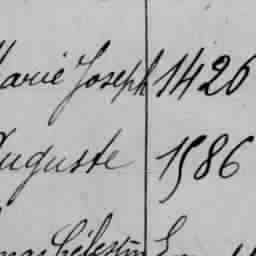 Marie Joseph 1426
Auguste 1586
Célestin